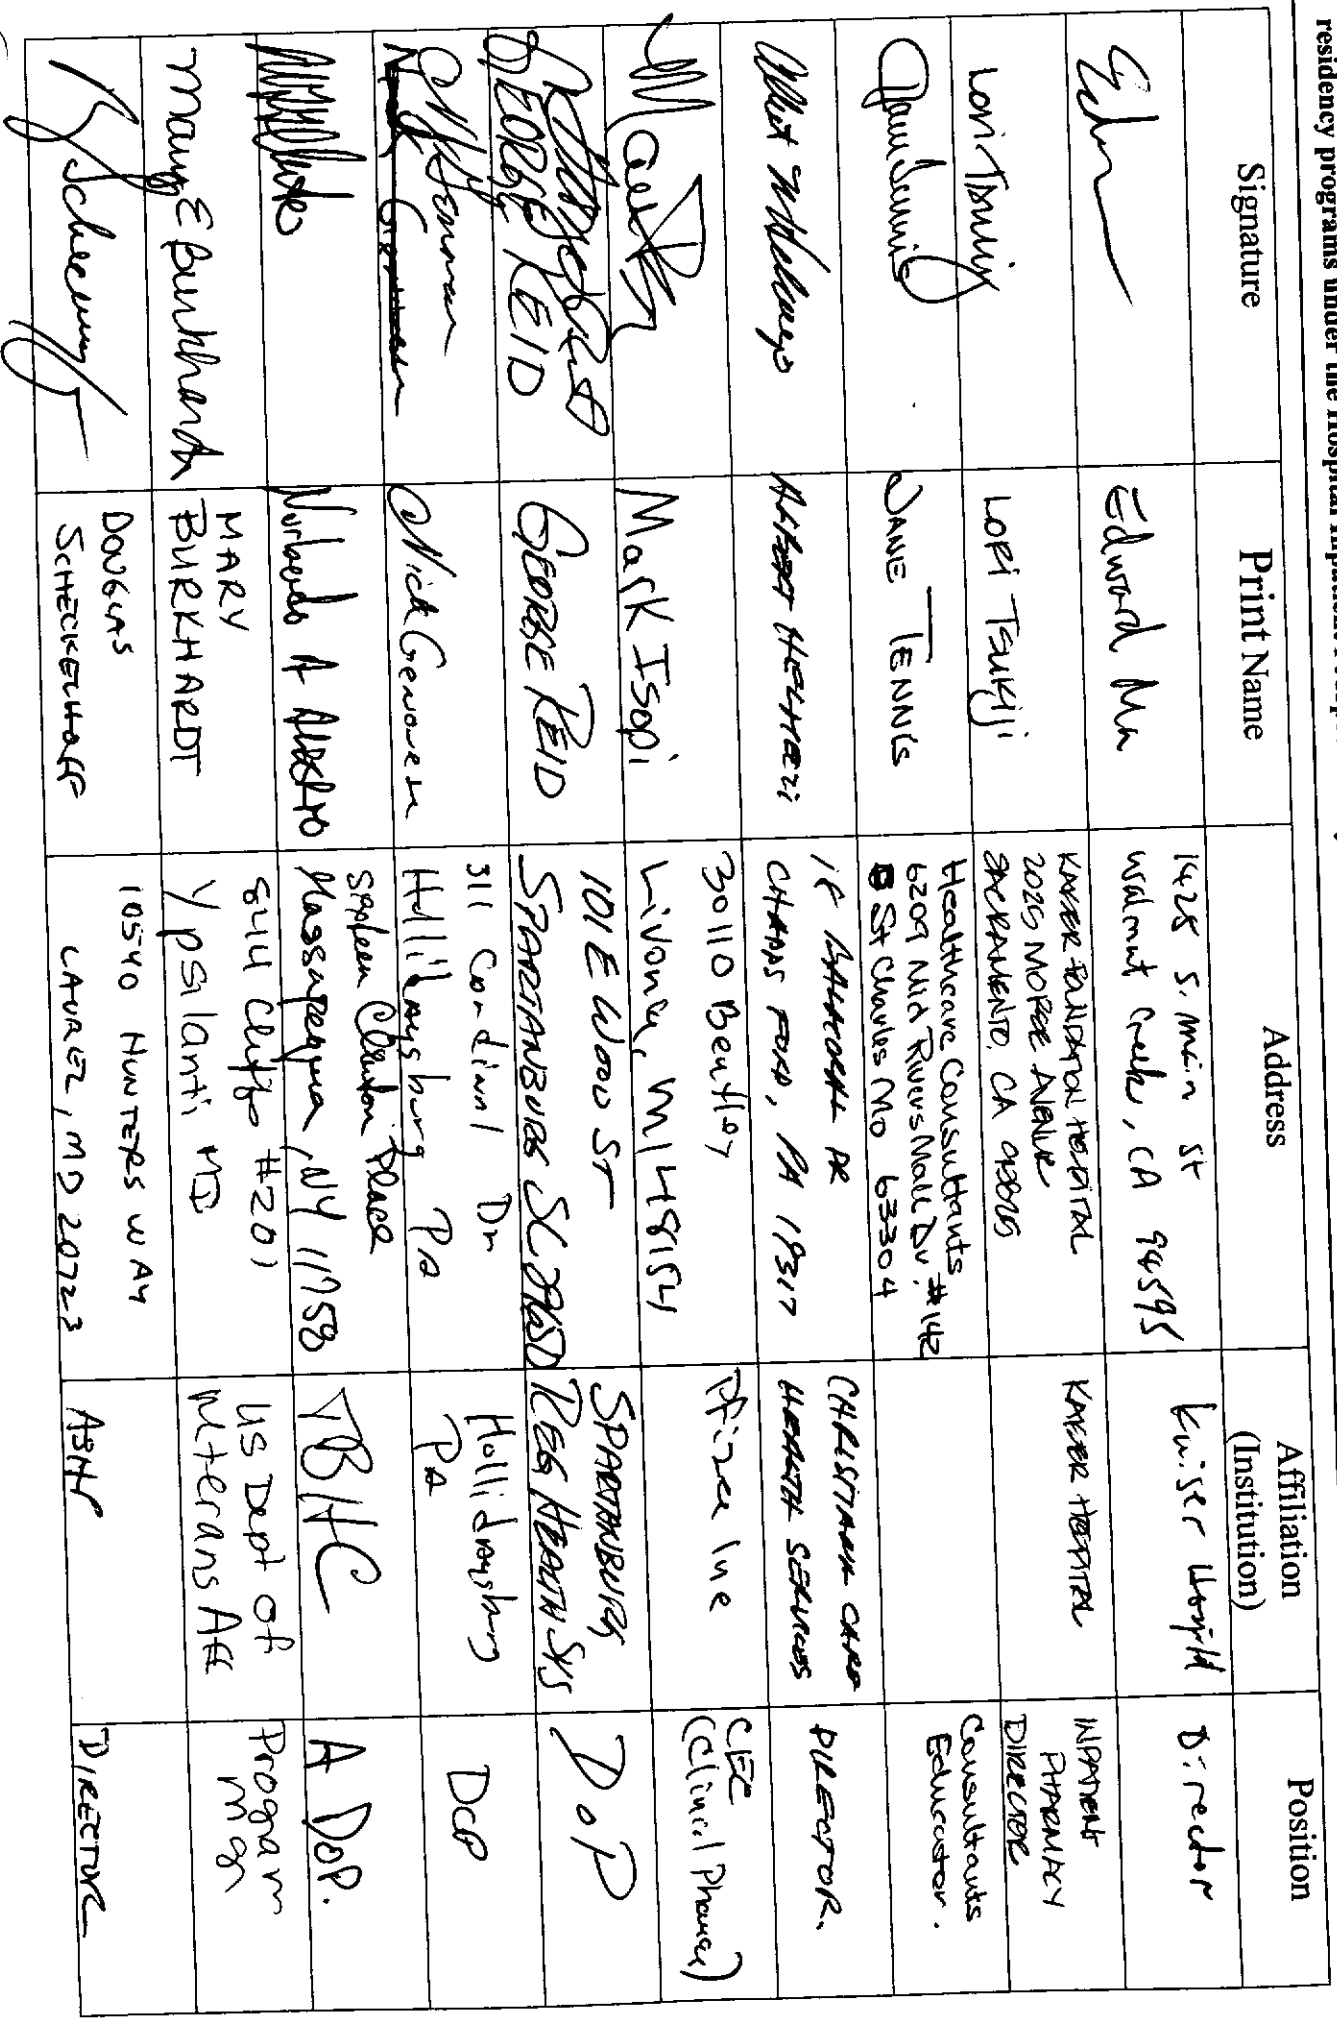 residency programs under the Hospital Inpatient
Signature
Print Name
Address
Affiliation
(Institution)
Position
Edward Ma
1425 S. Main St
Walnut Creek, CA 94595
Kaiser Hospital
Director
Lori Tsukiji
LORI TSUKIJI
KAISER FOUNDATION HOSPITAL
2025 MORSE AVENUE
SACRAMENTO, CA 95825
KAISER HOSPITAL
INPATIENT
PHARMACY
DIRECTOR
Jane Tennis
JANE TENNIS
Healthcare Consultants
6209 Mid Rivers Mall Dr. #142
St Charles Mo 63304
Consultants
Educator.
CHADDS FORD, PA 19317
CHRISTIANA CARE
HEALTH SERVICES
DIRECTOR.
Mark Isopi
30110 Bentley
Livonia, MI 48154
Pfizer Inc
CEC
(Clinical Pharm)
GEORGE REID
GEORGE REID
101 E WOOD ST
SPARTANBURG SC
SPARTANBURG
REG HEALTH SYS
DoP
Nick Genovese
311 Cardinal Dr
Hollidaysburg Pa
Hollidaysburg
Pa
DCP
Clinton Place
Massapequa, NY 11758
TBHC
A DOP.
Mary E Burkhardt
MARY
BURKHARDT
#201
Ypsilanti MI
US Dept of
Veterans Aff
Program
Mgr
Scheckelhoff
DOUGLAS
SCHECKELHOFF
10540 HUNTERS WAY
LAUREL, MD 20723
ASHP
DIRECTOR